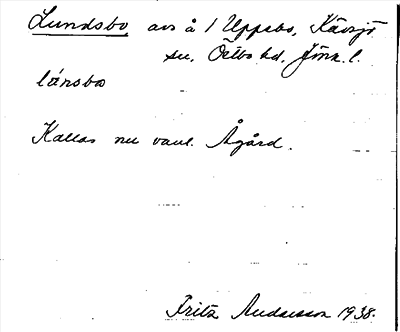 Lundsbo, avs å 1 Uppebo, Kävsjö
sn, Östbo hd, Jönk. l.
länsbo
Kallas nu vanl. Ågård.
Fritz Andersson 1938.